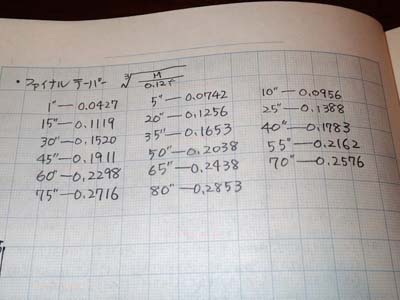 ・ファイナル テーパー ∛(M/0.125)
1"—0.0427 5"—0.0742 10"—0.0956
15"—0.1119 20"—0.1256 25"—0.1388
30"—0.1520 35"—0.1653 40"—0.1783
45"—0.1911 50"—0.2038 55"—0.2162
60"—0.2298 65"—0.2438 70"—0.2576
75"—0.2716 80"—0.2853